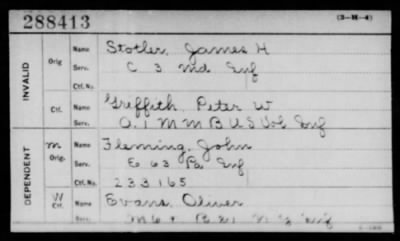 288413
(3-M-4)
INVALID
Orig Name Stotler, James H
Serv. C 3 Md Inf
Ctf. No.
Ctf. Name Griffith, Peter W
Serv. A. 1 M M B U S Vol Inf
DEPENDENT
M Orig. Name Fleming, John
Serv. E 63 Pa Inf
Ctf. No. 233165
W Ctf. Name Evans, Oliver
Serv.